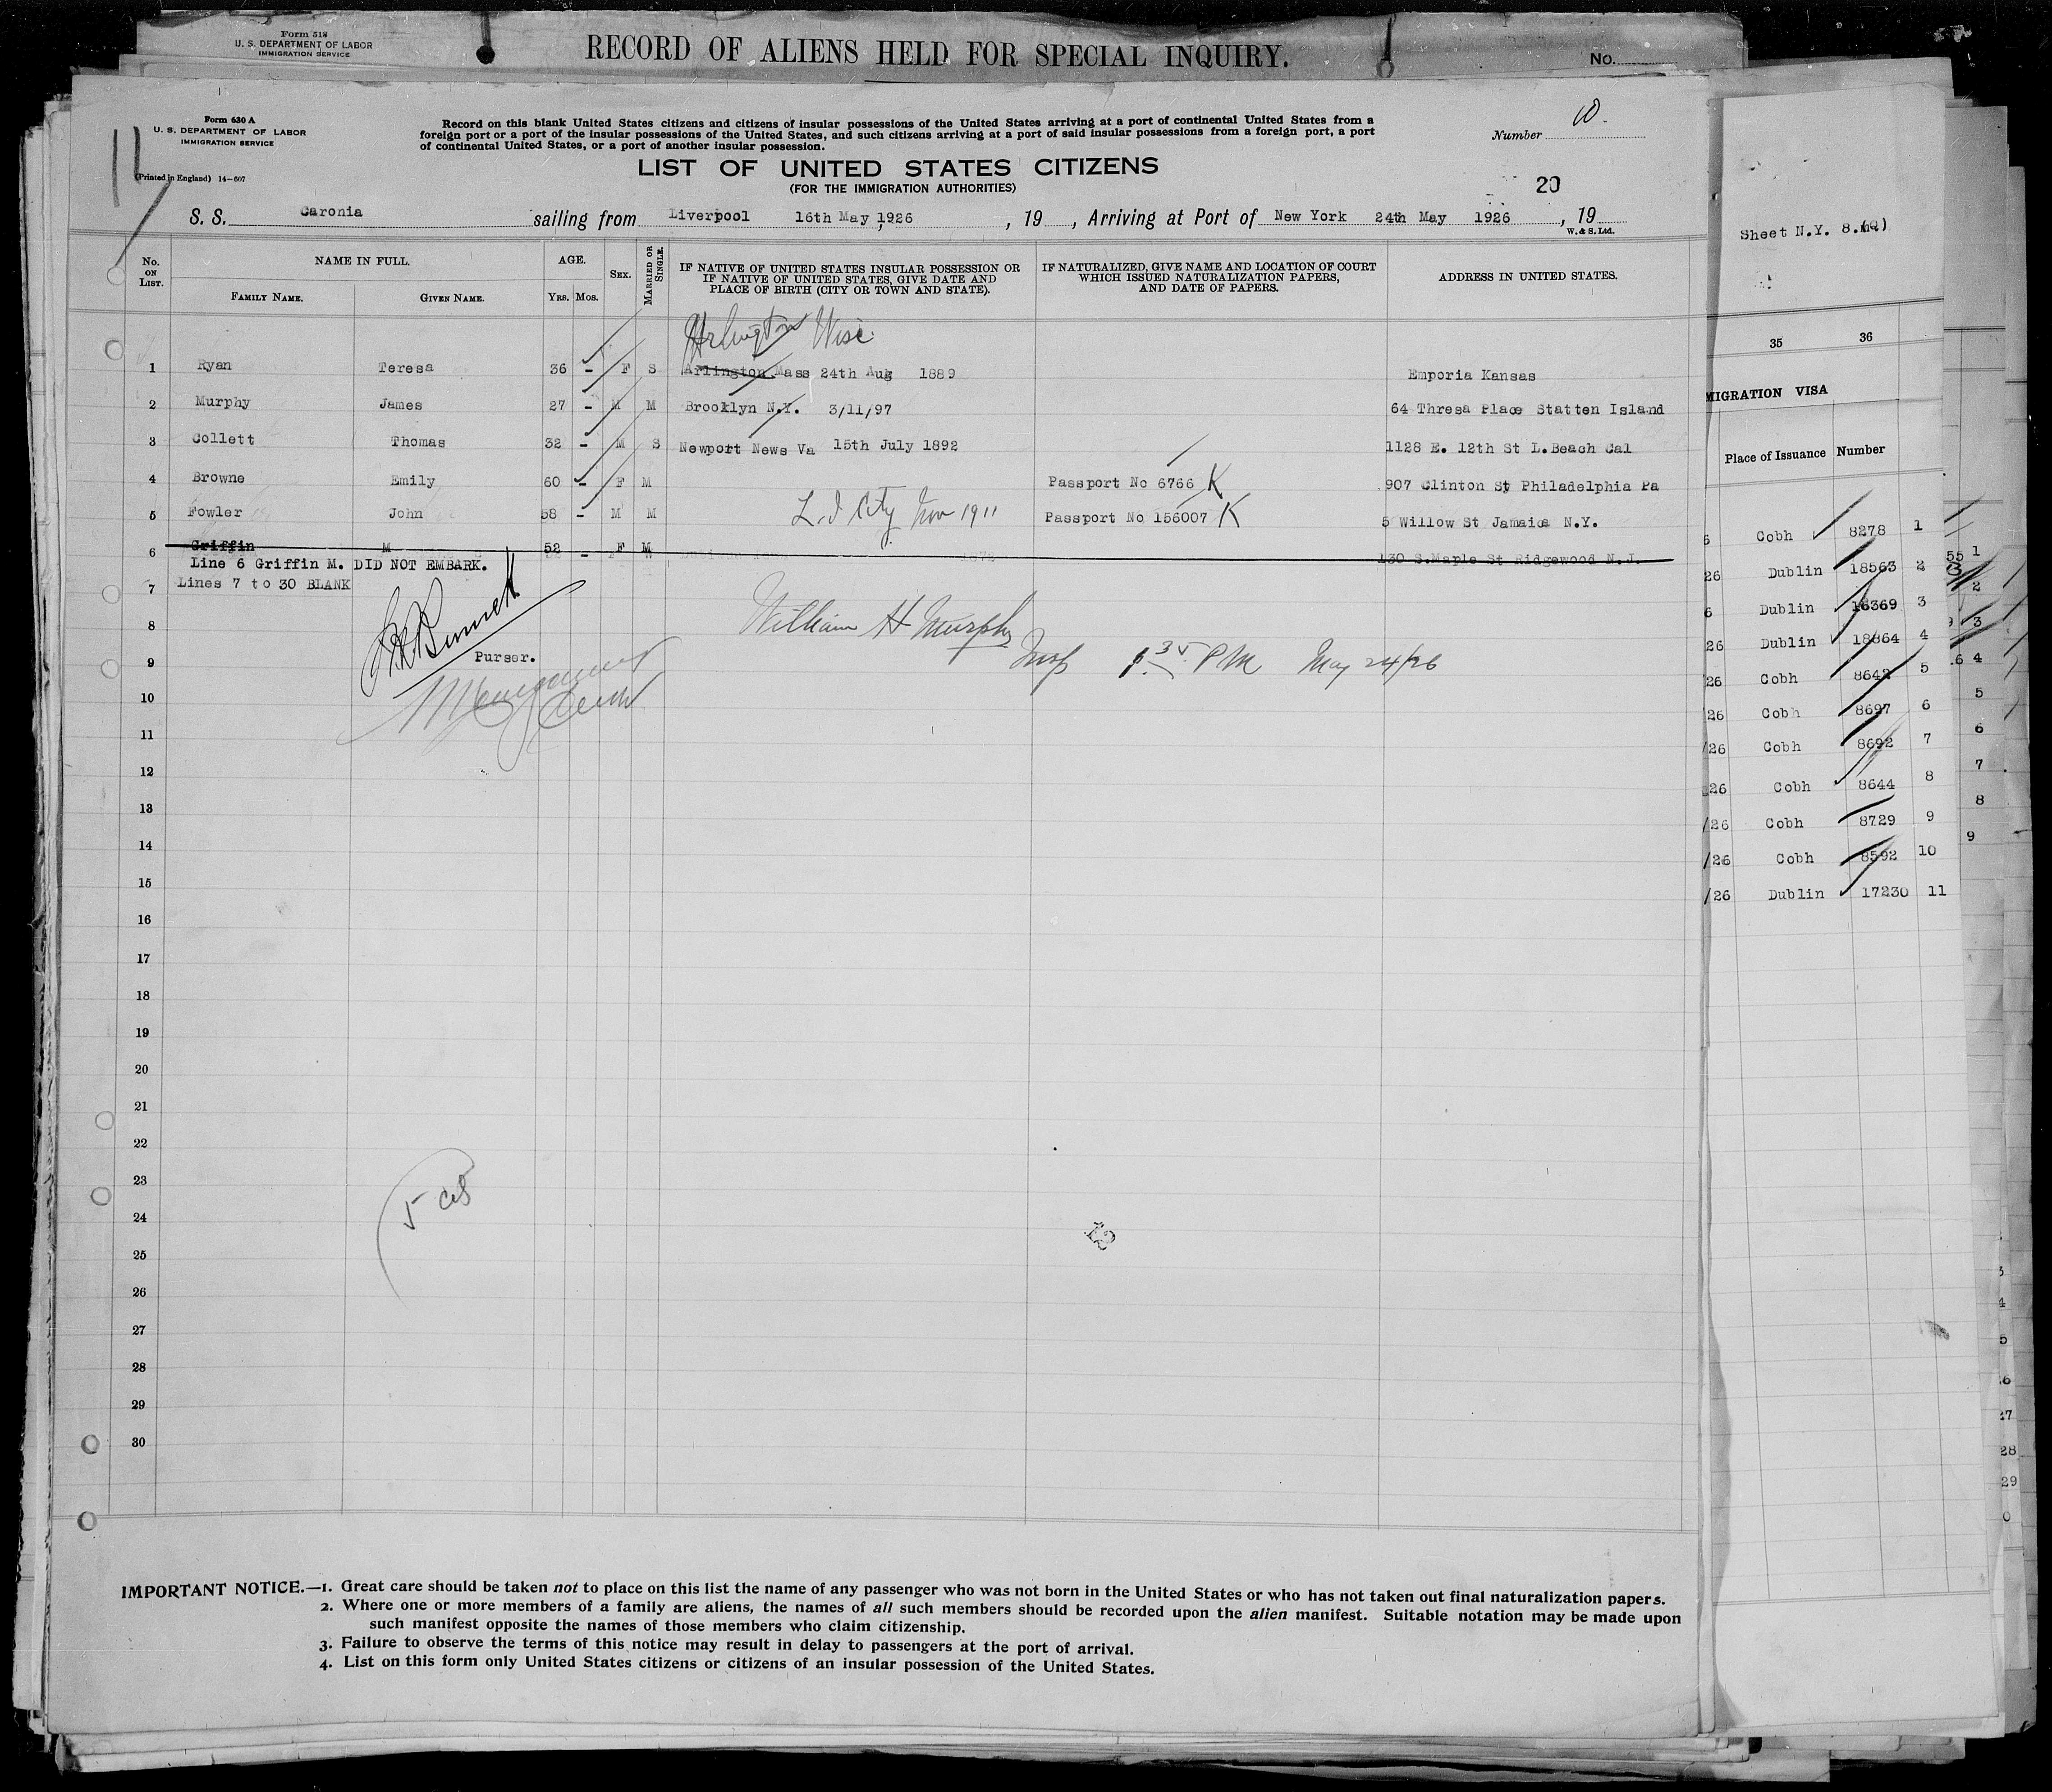 Form 518
U. S. DEPARTMENT OF LABOR
IMMIGRATION SERVICE
RECORD OF ALIENS HELD FOR SPECIAL INQUIRY.
No.
11
Form 630 A
U. S. DEPARTMENT OF LABOR
IMMIGRATION SERVICE
(Printed in England) 14-607
Record on this blank United States citizens and citizens of insular possessions of the United States arriving at a port of continental United States from a
foreign port or a port of the insular possessions of the United States, and such citizens arriving at a port of said insular possessions from a foreign port, a port
of continental United States, or a port of another insular possession.
Number 10.
LIST OF UNITED STATES CITIZENS
(FOR THE IMMIGRATION AUTHORITIES)
20
S. S. Caronia sailing from Liverpool 16th May, 1926 , 19 , Arriving at Port of New York 24th May 1926 , 19
W. & S. Ltd.
No. ON LIST. NAME IN FULL. FAMILY NAME. GIVEN NAME. AGE. YRS. MOS. SEX. MARRIED OR SINGLE. IF NATIVE OF UNITED STATES INSULAR POSSESSION OR IF NATIVE OF UNITED STATES, GIVE DATE AND PLACE OF BIRTH (CITY OR TOWN AND STATE). IF NATURALIZED, GIVE NAME AND LOCATION OF COURT WHICH ISSUED NATURALIZATION PAPERS, AND DATE OF PAPERS. ADDRESS IN UNITED STATES.
Arlington Wisc
1 Ryan Teresa 36 - F S Arlington Mass 24th Aug 1889 Emporia Kansas
2 Murphy James 27 - M M Brooklyn N.Y. 3/11/97 64 Thresa Place Statten Island
3 Collett Thomas 32 - M S Newport News Va 15th July 1892 1128 E. 12th St L.Beach Cal
4 Browne Emily 60 - F M Passport No 6766 K 907 Clinton St Philadelphia Pa
5 Fowler John 58 - M M L.I City Nov 1911 Passport No 156007 K 5 Willow St Jamaica N.Y.
6 Griffin M 52 - F M 1872 130 S.Maple St Ridgewood N.J.
Line 6 Griffin M. DID NOT EMBARK.
7 Lines 7 to 30 BLANK
8 William H Murphy
9 Purser. Insp 1.35 PM May 24/26
10
11
12
13
14
15
16
17
18
19
20
21
22
23
24 5
25
26
27
28
29
30
IMPORTANT NOTICE.—1. Great care should be taken not to place on this list the name of any passenger who was not born in the United States or who has not taken out final naturalization papers.
2. Where one or more members of a family are aliens, the names of all such members should be recorded upon the alien manifest. Suitable notation may be made upon
such manifest opposite the names of those members who claim citizenship.
3. Failure to observe the terms of this notice may result in delay to passengers at the port of arrival.
4. List on this form only United States citizens or citizens of an insular possession of the United States.
Sheet N.Y. 8.
35 36
MIGRATION VISA
Place of Issuance Number
6 Cobh 8278 1
26 Dublin 18563 2
6 Dublin 16369 3
26 Dublin 18864 4
26 Cobh 8642 5
26 Cobh 8697 6
/26 Cobh 8692 7
26 Cobh 8644 8
/26 Cobh 8729 9
/26 Cobh 8592 10
/26 Dublin 17230 11
55 1
2
3
4
5
6
7
8
9
28
29